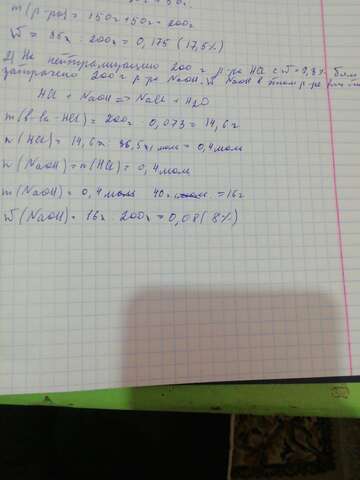 m(р-ра) = 150г + 50г = 200г
ω = 35г : 200г = 0,175 (17,5%)
2) На нейтрализацию 200 г р-ра HCl с ω = 7,3% было
затрачено 200 г р-ра NaOH. ω NaOH в этом р-ре
HCl + NaOH = NaCl + H2O
m(в-ва HCl) = 200г · 0,073 = 14,6г
n(HCl) = 14,6г : 36,5г/моль = 0,4моль
n(NaOH) = n(HCl) = 0,4моль
m(NaOH) = 0,4моль · 40г/моль = 16г
ω(NaOH) = 16г : 200г = 0,08 (8%)